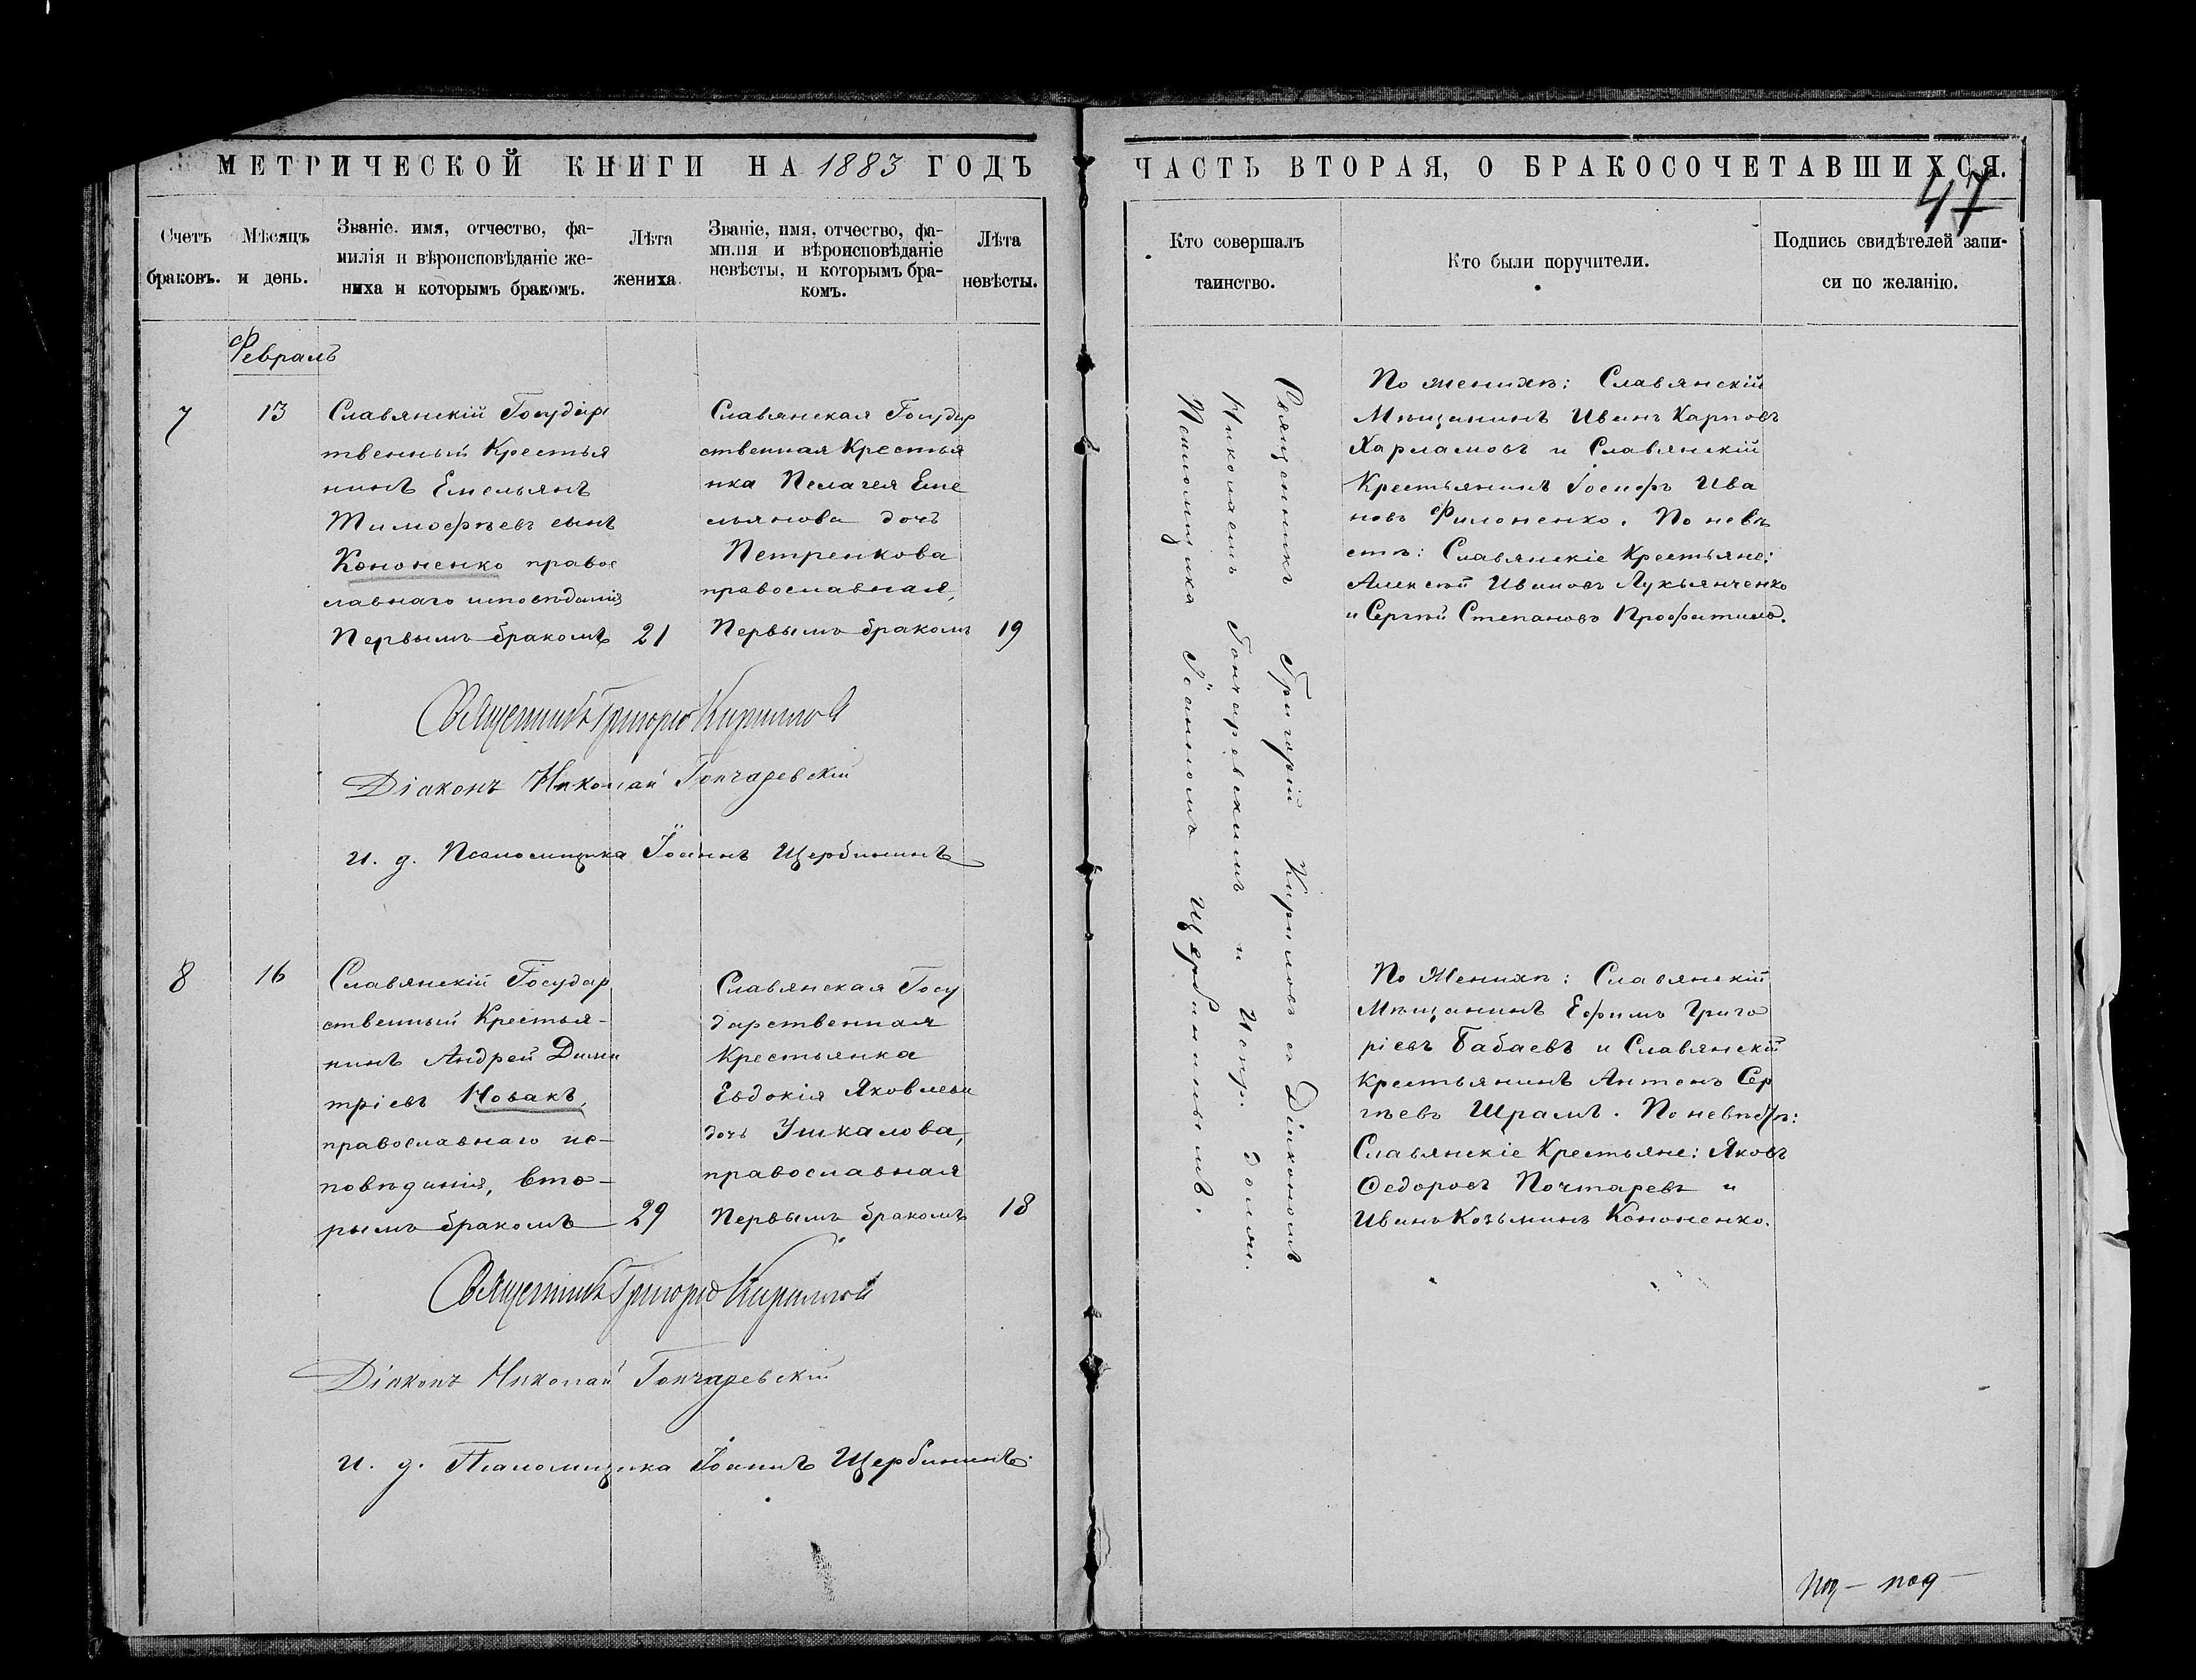 МЕТРИЧЕСКОЙ КНИГИ НА 1883 ГОДЪ
Счетъ браковъ.
Мѣсяцъ и день.
Званіе, имя, отчество, фа-
милія и вѣроисповѣданіе же-
ниха и которымъ бракомъ.
Лѣта жениха.
Званіе, имя, отчество, фа-
милія и вѣроисповѣданіе
невѣсты, и которымъ бра-
комъ.
Лѣта невѣсты.
Февраль
7
13
Славянскій Государ
твенный Крестья
нинъ Емельянъ
Тимофѣевъ сынъ
Кононенко правос
лавнаго исповѣданія
Первымъ бракомъ
21
Славянская Государ
ственная Крестья
нка Пелагея Еме
льянова дочь
Петренкова
православная,
Первымъ бракомъ
19
Священникъ Григорій Кириллов
Діаконъ Николай Гончаревскій
и. д. Псаломщика Іоаннъ Щербининъ
8
16
Славянскій Государ
ственный Крестья-
нинъ Андрей Дими
тріевъ Новакъ,
православнаго ис-
повѣданія, вто-
рымъ бракомъ
29
Славянская Госу
дарственная
Крестьянка
Евдокія Яковлева
дочь Ушкалова,
православная
Первымъ бракомъ
18
Священникъ Григорій Кириллов
Діаконъ Николай Гончаревскій
и. д. Псаломщика Іоаннъ Щербининъ.
ЧАСТЬ ВТОРАЯ, О БРАКОСОЧЕТАВШИХСЯ.
47
Кто совершалъ
таинство.
Кто были поручители.
Подпись свидѣтелей запи-
си по желанію.
Священникъ Григорій Кириловъ съ Діакономъ
Николаемъ Гончаревскимъ и Испр. должн.
Псаломщика Іоанномъ Щербининымъ.
По женихѣ: Славянскій
Мѣщанинъ Иванъ Карповъ
Харламовъ и Славянскій
Крестьянинъ Іосифъ Ива
новъ Филоненко. По невѣ
стѣ: Славянскіе Крестьяне:
Алексѣй Ивановъ Лукьянченко
и Сергѣй Степановъ
По Женихѣ: Славянскій
Мѣщанинъ Ефимъ Григо
ріевъ Бабаевъ и Славянскій
Крестьянинъ Антонъ Сер
гѣевъ Шрамъ. По невѣстѣ:
Славянскіе Крестьяне: Яковъ
Ѳедоровъ Почтаревъ и
Иванъ Козьминъ Кононенко.